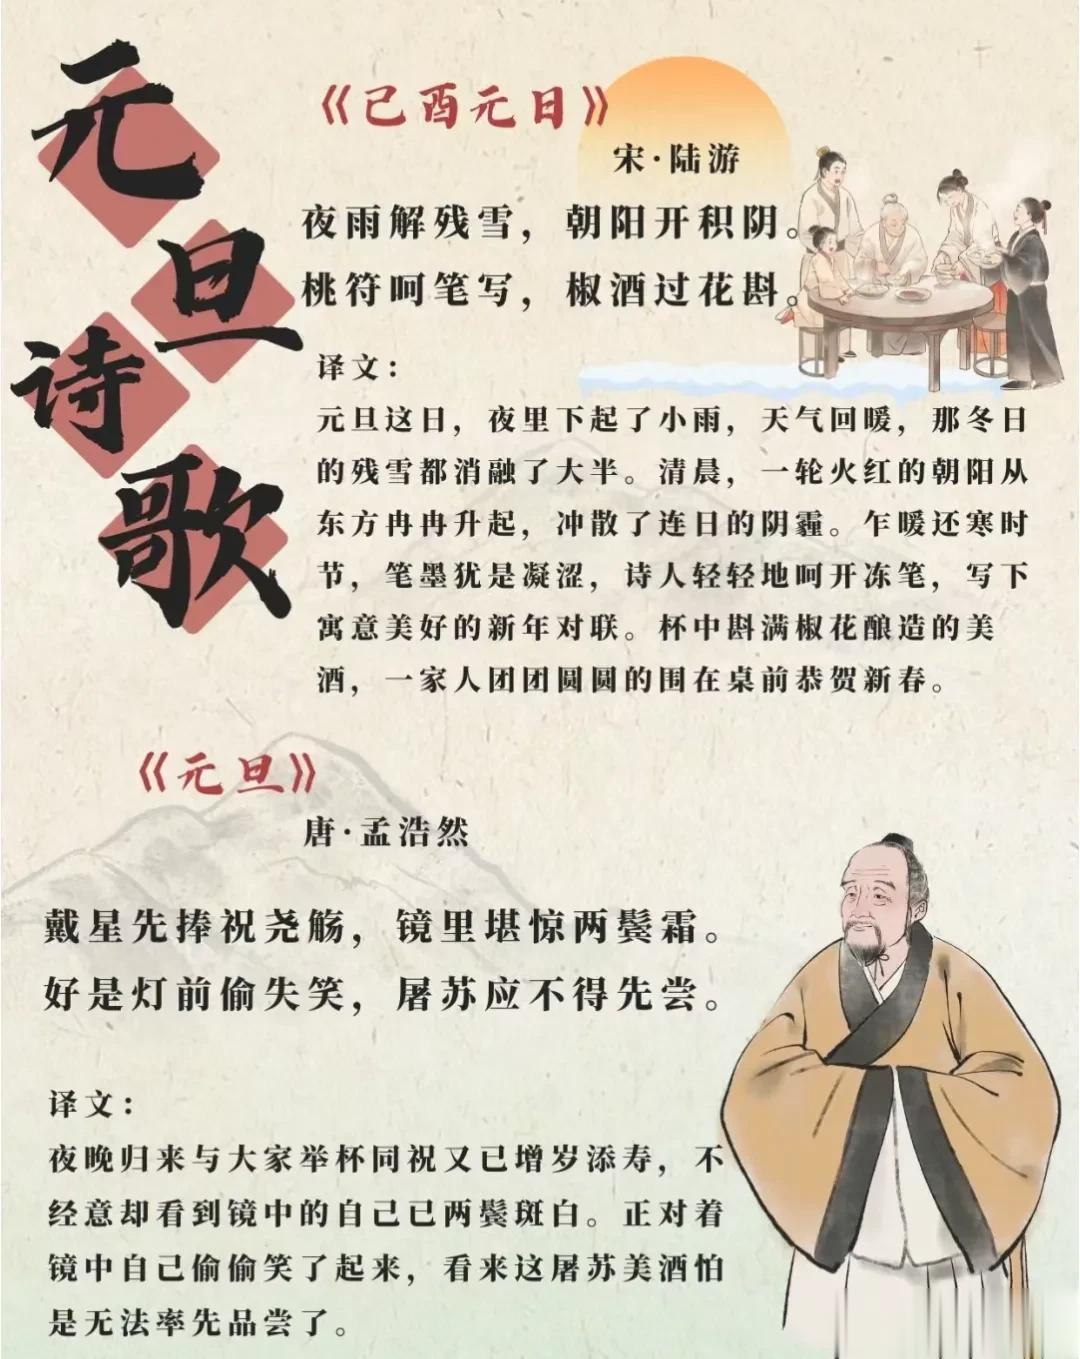 元旦诗歌
《己酉元日》
宋·陆游
夜雨解残雪，朝阳开积阴。
桃符呵笔写，椒酒过花斟。
译文：
元旦这日，夜里下起了小雨，天气回暖，那冬日
的残雪都消融了大半。清晨，一轮火红的朝阳从
东方冉冉升起，冲散了连日的阴霾。乍暖还寒时
节，笔墨犹是凝涩，诗人轻轻地呵开冻笔，写下
寓意美好的新年对联。杯中斟满椒花酿造的美
酒，一家人团团圆圆的围在桌前恭贺新春。
《元旦》
唐·孟浩然
戴星先捧祝尧觞，镜里堪惊两鬓霜。
好是灯前偷失笑，屠苏应不得先尝。
译文：
夜晚归来与大家举杯同祝又已增岁添寿，不
经意却看到镜中的自己已两鬓斑白。正对着
镜中自己偷偷笑了起来，看来这屠苏美酒怕
是无法率先品尝了。